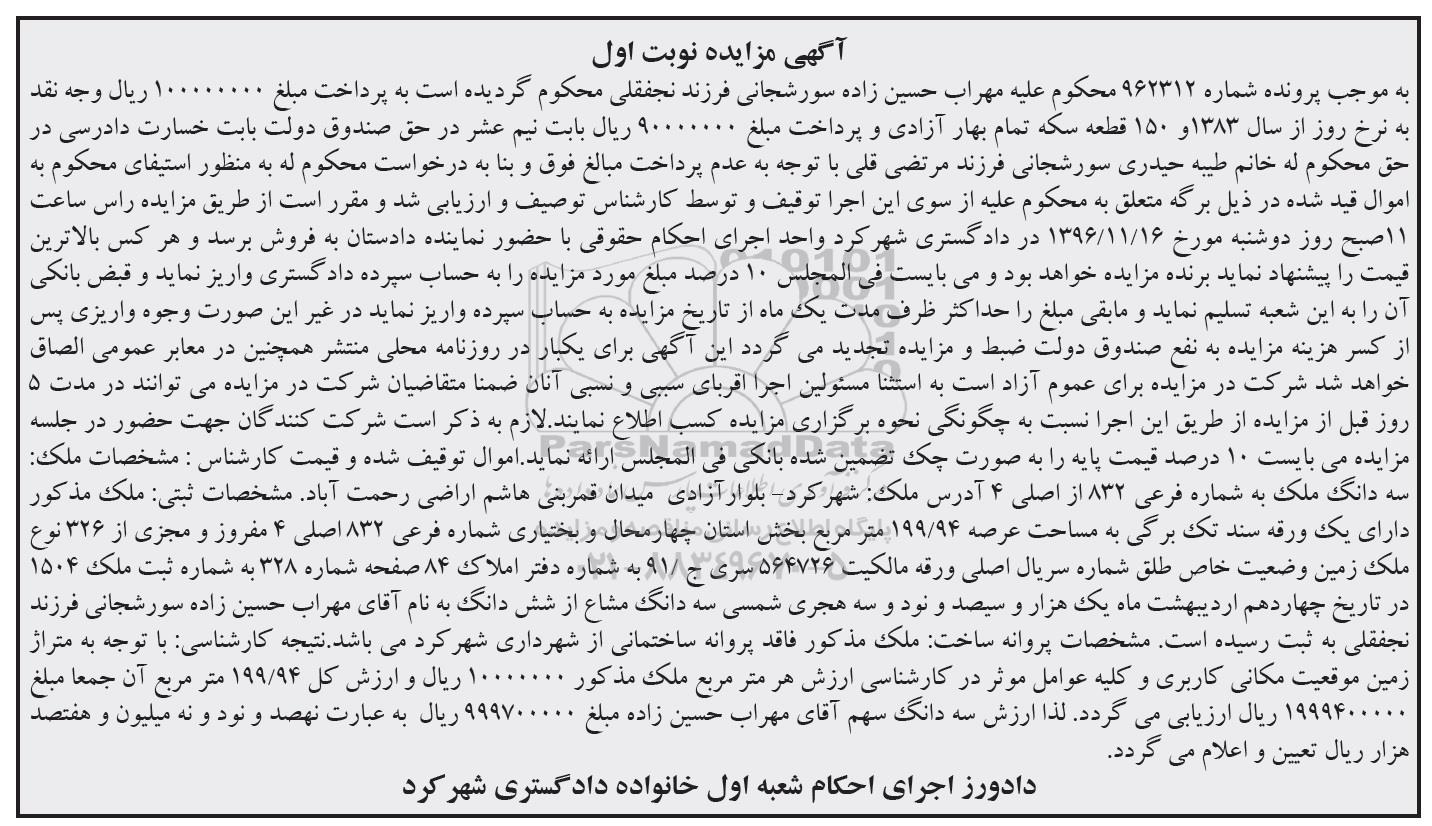 آگهی مزایده نوبت اول
به موجب پرونده شماره ۹۶۲۳۱۲ محکوم علیه مهراب حسین زاده سورشجانی فرزند نجفقلی محکوم گردیده است به پرداخت مبلغ ۱۰۰۰۰۰۰۰۰ ریال وجه نقد
به نرخ روز از سال ۱۳۸۳و ۱۵۰ قطعه سکه تمام بهار آزادی و پرداخت مبلغ ۹۰۰۰۰۰۰۰ ریال بابت نیم عشر در حق صندوق دولت بابت خسارت دادرسی در
حق محکوم له خانم طیبه حیدری سورشجانی فرزند مرتضی قلی با توجه به عدم پرداخت مبالغ فوق و بنا به درخواست محکوم له به منظور استیفای محکوم به
اموال قید شده در ذیل برگه متعلق به محکوم علیه از سوی این اجرا توقیف و توسط کارشناس توصیف و ارزیابی شد و مقرر است از طریق مزایده راس ساعت
۱۱صبح روز دوشنبه مورخ ۱۳۹۶/۱۱/۱۶ در دادگستری شهرکرد واحد اجرای احکام حقوقی با حضور نماینده دادستان به فروش برسد و هر کس بالاترین
قیمت را پیشنهاد نماید برنده مزایده خواهد بود و می بایست فی المجلس ۱۰ درصد مبلغ مورد مزایده را به حساب سپرده دادگستری واریز نماید و قبض بانکی
آن را به این شعبه تسلیم نماید و مابقی مبلغ را حداکثر ظرف مدت یک ماه از تاریخ مزایده به حساب سپرده واریز نماید در غیر این صورت وجوه واریزی پس
از کسر هزینه مزایده به نفع صندوق دولت ضبط و مزایده تجدید می گردد این آگهی برای یکبار در روزنامه محلی منتشر همچنین در معابر عمومی الصاق
خواهد شد شرکت در مزایده برای عموم آزاد است به استثنا مسئولین اجرا اقربای سببی و نسبی آنان ضمنا متقاضیان شرکت در مزایده می توانند در مدت ۵
روز قبل از مزایده از طریق این اجرا نسبت به چگونگی نحوه برگزاری مزایده کسب اطلاع نمایند.لازم به ذکر است شرکت کنندگان جهت حضور در جلسه
مزایده می بایست ۱۰ درصد قیمت پایه را به صورت چک تضمین شده بانکی فی المجلس ارائه نماید.اموال توقیف شده و قیمت کارشناس : مشخصات ملک:
سه دانگ ملک به شماره فرعی ۸۳۲ از اصلی ۴ آدرس ملک: شهرکرد- بلوارآزادی میدان قمربنی هاشم اراضی رحمت آباد. مشخصات ثبتی: ملک مذکور
دارای یک ورقه سند تک برگی به مساحت عرصه ۱۹۹/۹۴ متر مربع بخش استان چهارمحال و بختیاری شماره فرعی ۸۳۲ اصلی ۴ مفروز و مجزی از ۳۲۶ نوع
ملک زمین وضعیت خاص طلق شماره سریال اصلی ورقه مالکیت ۵۶۴۷۲۶ سری ج/۹۱ به شماره دفتر املاک ۸۴ صفحه شماره ۳۲۸ به شماره ثبت ملک ۱۵۰۴
در تاریخ چهاردهم اردیبهشت ماه یک هزار و سیصد و نود و سه هجری شمسی سه دانگ مشاع از شش دانگ به نام آقای مهراب حسین زاده سورشجانی فرزند
نجفقلی به ثبت رسیده است. مشخصات پروانه ساخت: ملک مذکور فاقد پروانه ساختمانی از شهرداری شهرکرد می باشد.نتیجه کارشناسی: با توجه به متراژ
زمین موقعیت مکانی کاربری و کلیه عوامل موثر در کارشناسی ارزش هر متر مربع ملک مذکور ۱۰۰۰۰۰۰۰ ریال و ارزش کل ۱۹۹/۹۴ متر مربع آن جمعا مبلغ
۱۹۹۹۴۰۰۰۰۰ ریال ارزیابی می گردد. لذا ارزش سه دانگ سهم آقای مهراب حسین زاده مبلغ ۹۹۹۷۰۰۰۰۰ ریال به عبارت نهصد و نود و نه میلیون و هفتصد
هزار ریال تعیین و اعلام می گردد.
دادورز اجرای احکام شعبه اول خانواده دادگستری شهرکرد
ParsNamadData